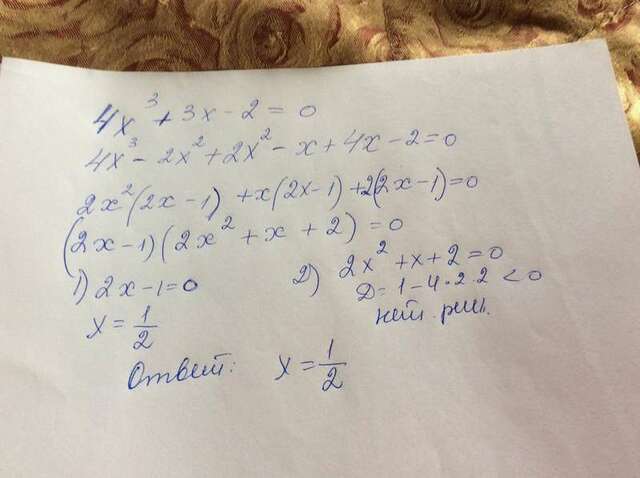 4x³ + 3x - 2 = 0
4x³ - 2x² + 2x² - x + 4x - 2 = 0
2x²(2x - 1) + x(2x - 1) + 2(2x - 1) = 0
(2x - 1)(2x² + x + 2) = 0
1) 2x - 1 = 0
x = 1/2
2) 2x² + x + 2 = 0
D = 1 - 4·2·2 < 0
нет реш.
Ответ: x = 1/2